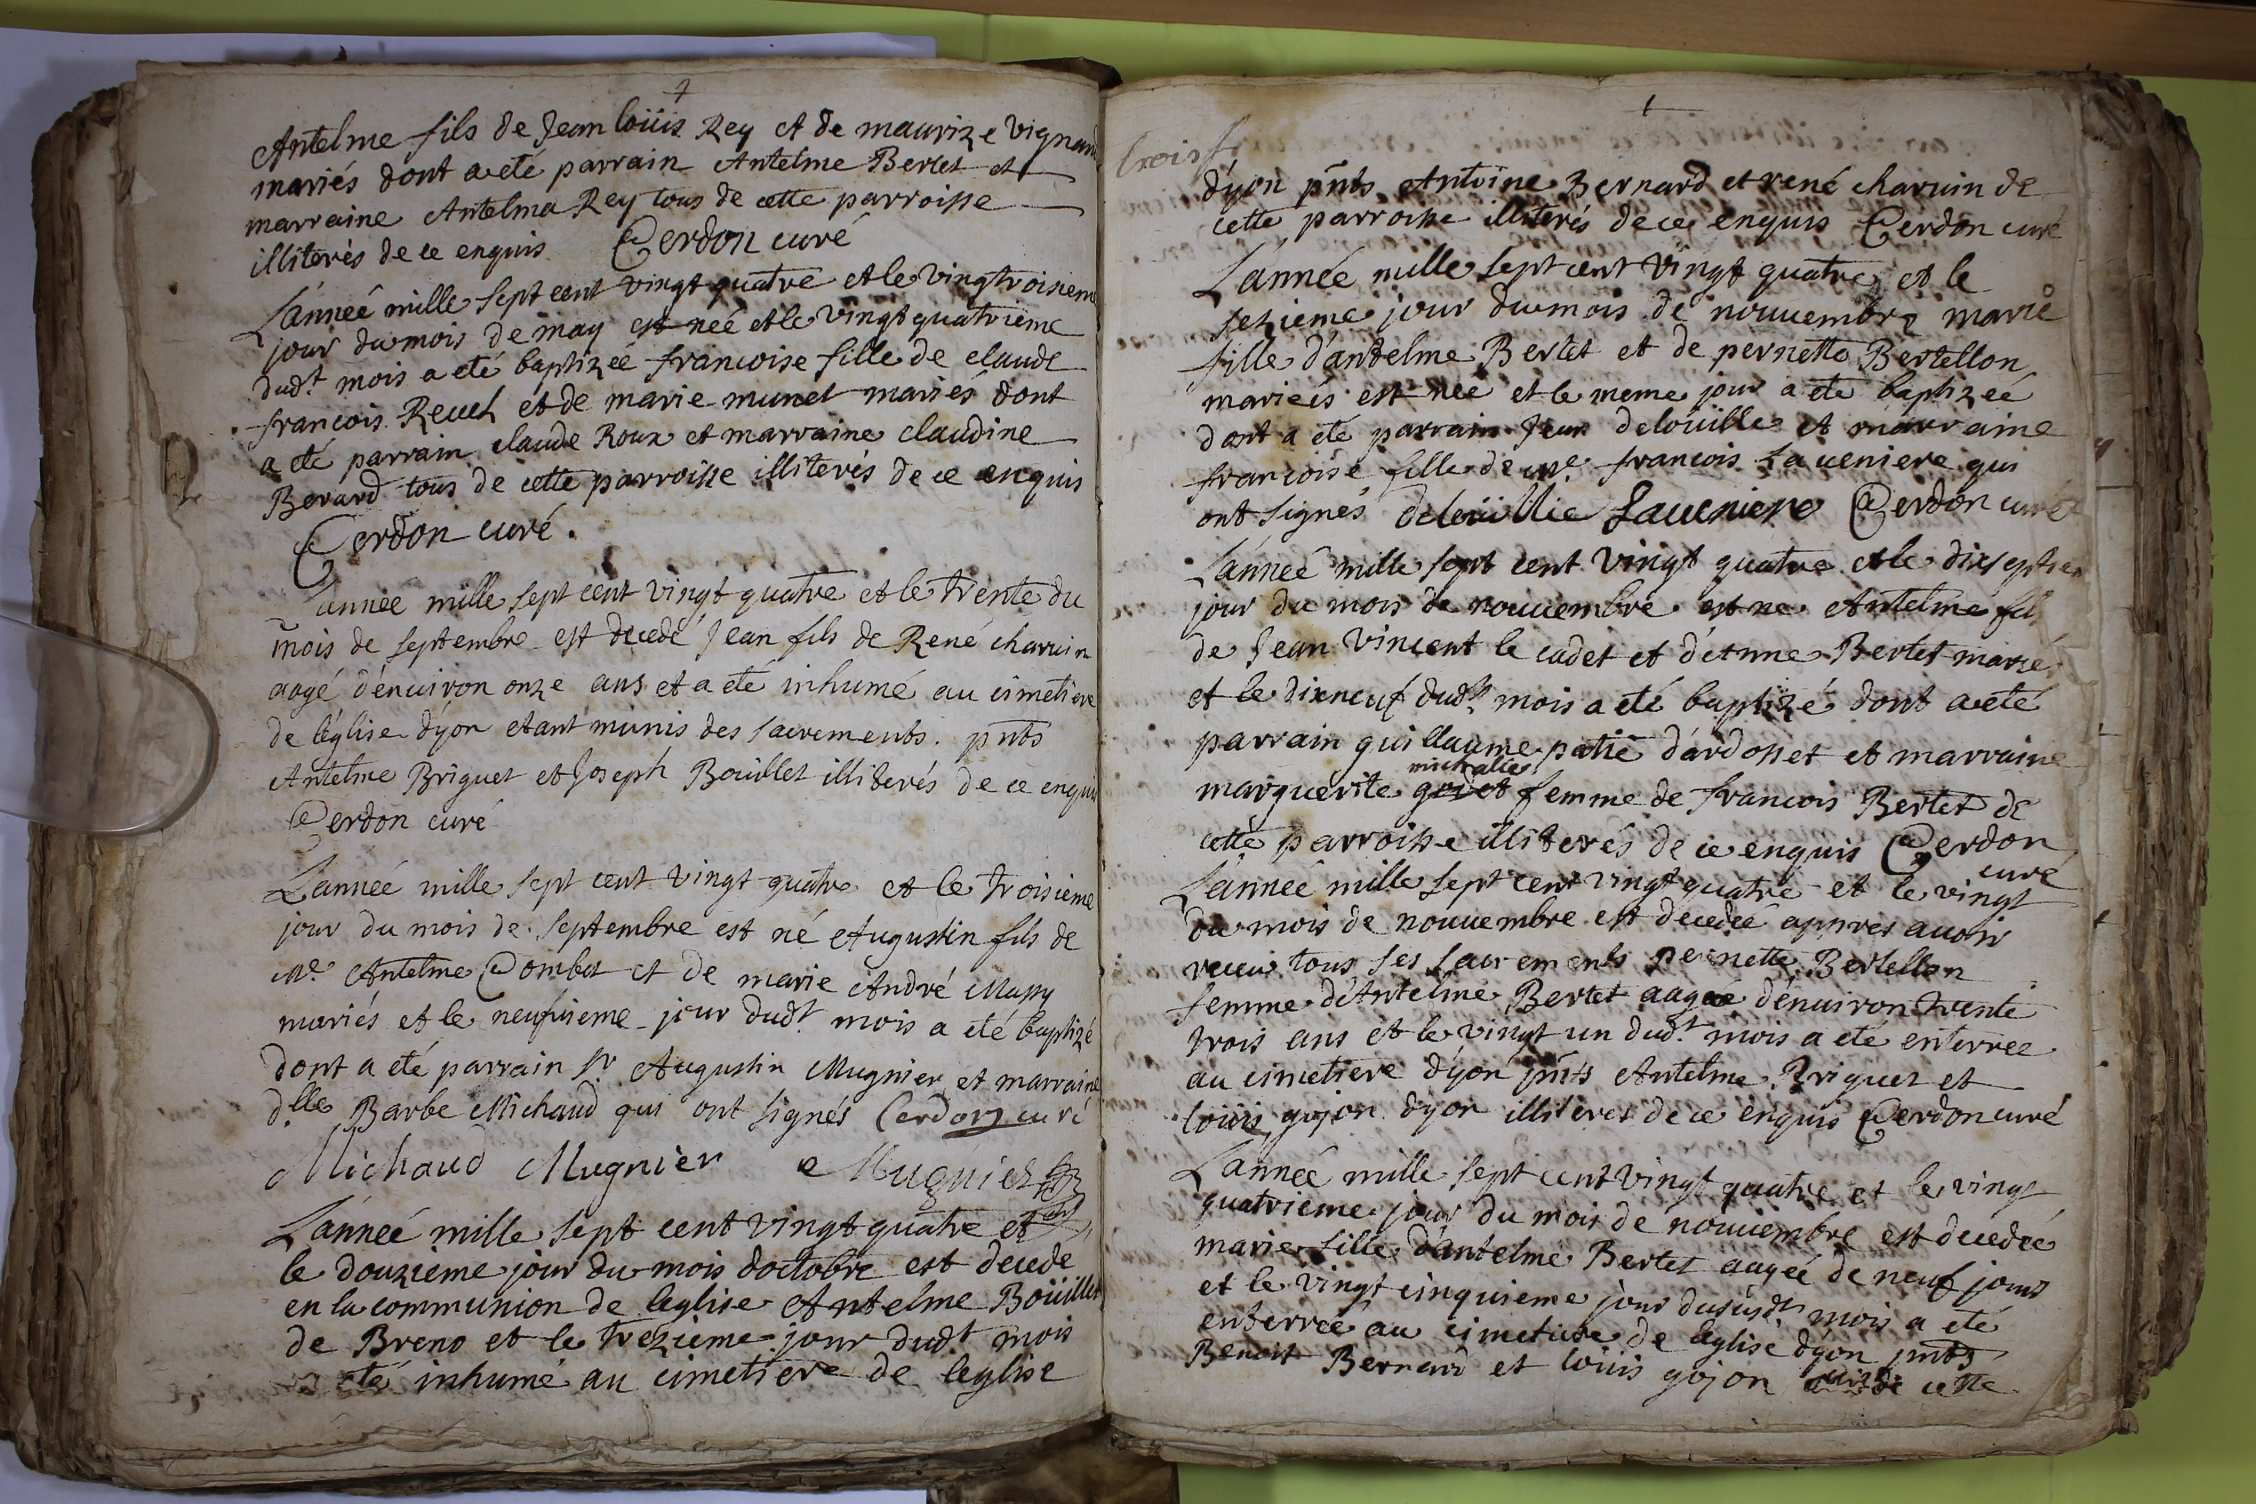 Antelme fils de Jean loüis Rey et de maurize vignand
mariés dont a eté parrain Antelme Bertet et
marraine Antelma Rey tous de cette parroisse
illiterés de ce enquis Cerdon curé
L'anneé mille sept cent vingt quatre et le vingtroisieme
jour du mois de may est neé et le vingt quatrieme
dud.t mois a eté baptizeé francoise fille de claude
francois Revel et de marie munet mariés dont
a eté parrain claude Roux et marraine claudine
Berard tous de cette parroisse illiterés de ce enquis
Cerdon curé.
L'anneé mille sept cent vingt quatre et le trente du
mois de septembre est decedé Jean fils de René charvin
aagé d'enuiron onze ans et a eté inhumé au cimetiere
de l'église d'yon etant munis des sacrements. pnts
Antelme Briguet et Joseph Bouillet illiterés de ce enquis
Cerdon curé
L'anneé mille sept cent vingt quatre et le troisieme
jour du mois de septembre est né Augustin fils de
M.e Antelme Combet et de marie André Massy
mariés et le neufuieme jour dud.t mois a eté baptizé
dont a eté parrain Sr Augustin Mugnier et marraine
d.lle Barbe Michaud qui ont signés Cerdon curé
Michaud Mugnier e Mugnier
L'anneé mille sept cent vingt quatre et
le douzieme jour du mois d'octobre est decede
en la communion de l'eglise Antelme Boüillet
de Breno et le trezieme jour dud.t mois
a eté inhumé au cimetiere de l'eglise
trois
d'yon pnts Antoine Bernard et rené charuin de
cette parroisse illiterés de ce enquis Cerdon curé
L'anneé mille sept cent vingt quatre et le
sezieme jour du mois de nouuembre marie
fille d'antelme Bertet et de pernette Bertellon
marieés est neé et le meme jour a eté baptizeé
dont a eté parrain Jean deloüille et marraine
francoise fille de M.e francois Laueniere qui
ont signés deloüillie Laueniere Cerdon curé
L'anneé mille sept cent vingt quatre et le dixseptiem
jour du mois de nouuembre est né Antelme fils
de Jean vincent le cadet et d'etienne Bertet mariés
et le dixneuf dud.t mois a eté baptizé dont a eté
parrain guillaume patié d'ardosset et marraine
michalier
marguerite goiet femme de francois Bertet de
cette parroisse illiterés de ce enquis Cerdon
curé
L'anneé mille sept cent vingt quatre et le vingt
du mois de nouuembre est decedeé appres auoir
receu tous ses sacrements pernette Bertellon
femme d'Antelme Bertet aageé d'enuiron trente
trois ans et le vingt un dud.t mois a eté enterree
au cimetiere d'yon pnts Antelme Briguet et
loüis gojon d'yon illiterés de ce enquis Cerdon curé
L'anneé mille sept cent vingt quatre et le vingt
quatrieme jour du mois de nouuembre est decedeé
marie fille d'antelme Bertet aageé de neuf jours
et le vingt cinquieme jour dususd.t mois a eté
enterreé au cimetiere de l'eglise d'yon pnts
Benoit Bernard et loüis gojon de cette